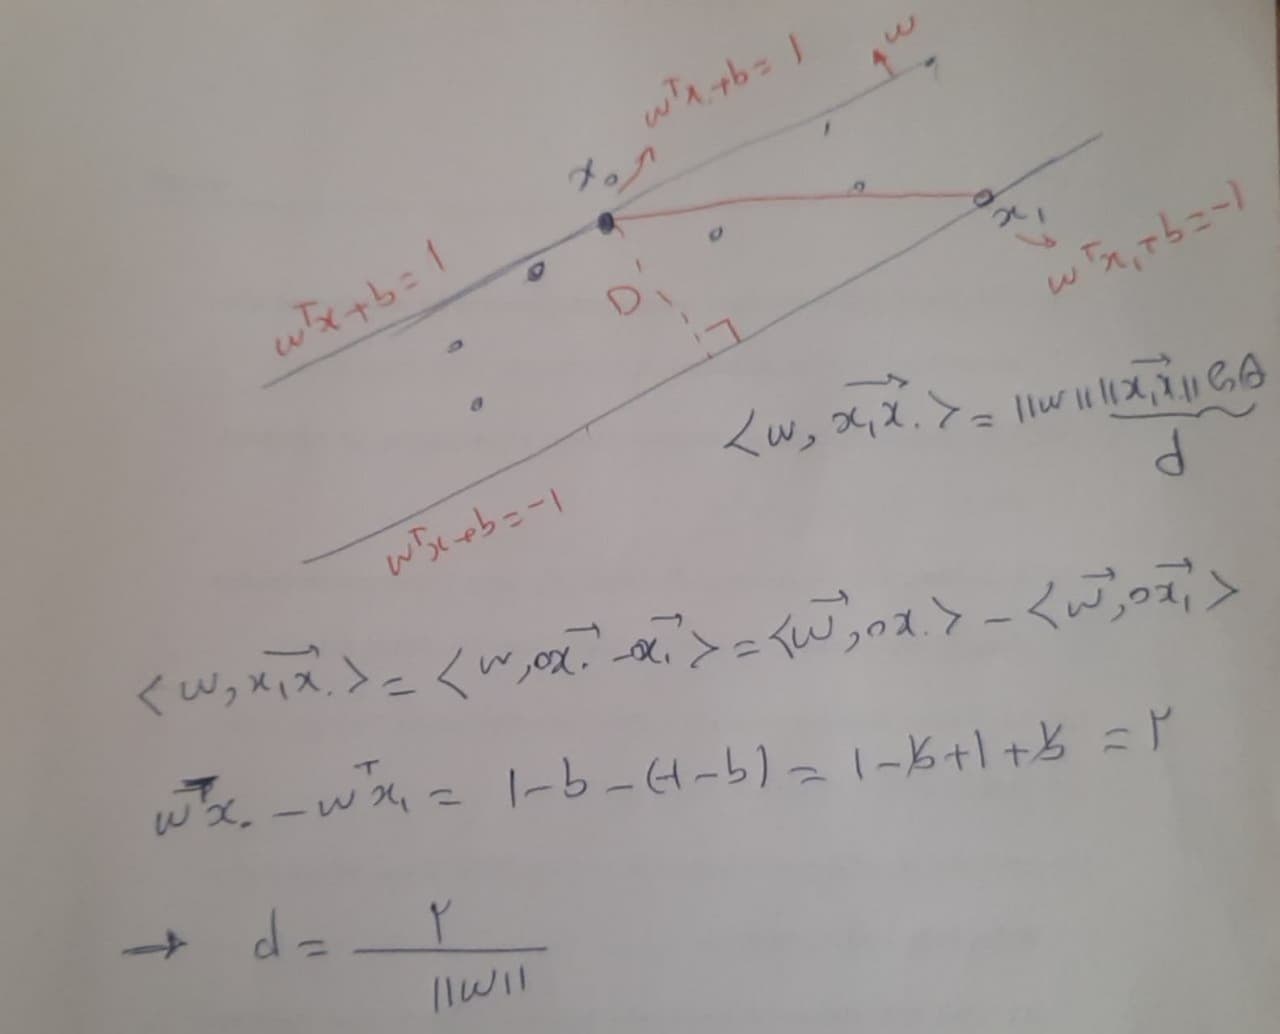 w
wᵀx.+b=1
x.
wᵀx+b=1
x₁
wᵀx₁+b=-1
D
<w, x₁x.→> = ||w|| ||x₁x.→|| cosθ
d
wᵀx+b=-1
<w, x₁x.→> = <w, ox.→ - ox₁→> = <w→, ox.> - <w→, ox₁→>
wᵀx. - wᵀx₁ = 1-b-(-1-b) = 1-b+1+b = ۲
→ d = ۲
||w||